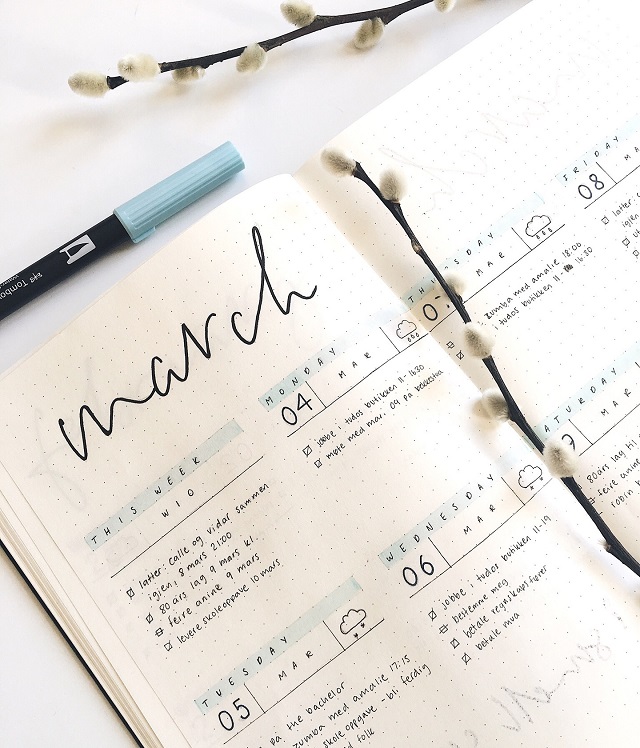 march
THIS WEEK
W10
latter: calle og vidar sammen
igjen, 8 mars 21:00
80 års lag 9 mars kl.
feire anine 9 mars
levere skoleoppave 10 mars
MONDAY
04 MAR
jobbe i tudos butikken 11-1630
møte med mar. 09 på
TUESDAY
05 MAR
pa the bachelor
zumba med amalie 17:15
skole oppgave - bli ferdig
folk
WEDNESDAY
06 MAR
jobbe i tudos butikken 11-19
bestemme meg
betale regnskapsfører
betale mva
MAR
zumba med amalie 18:00
tudos butikken 11- 1630
FRIDAY
08
latter:
igjen
MAR
80års lag
feire
robin
Tombow